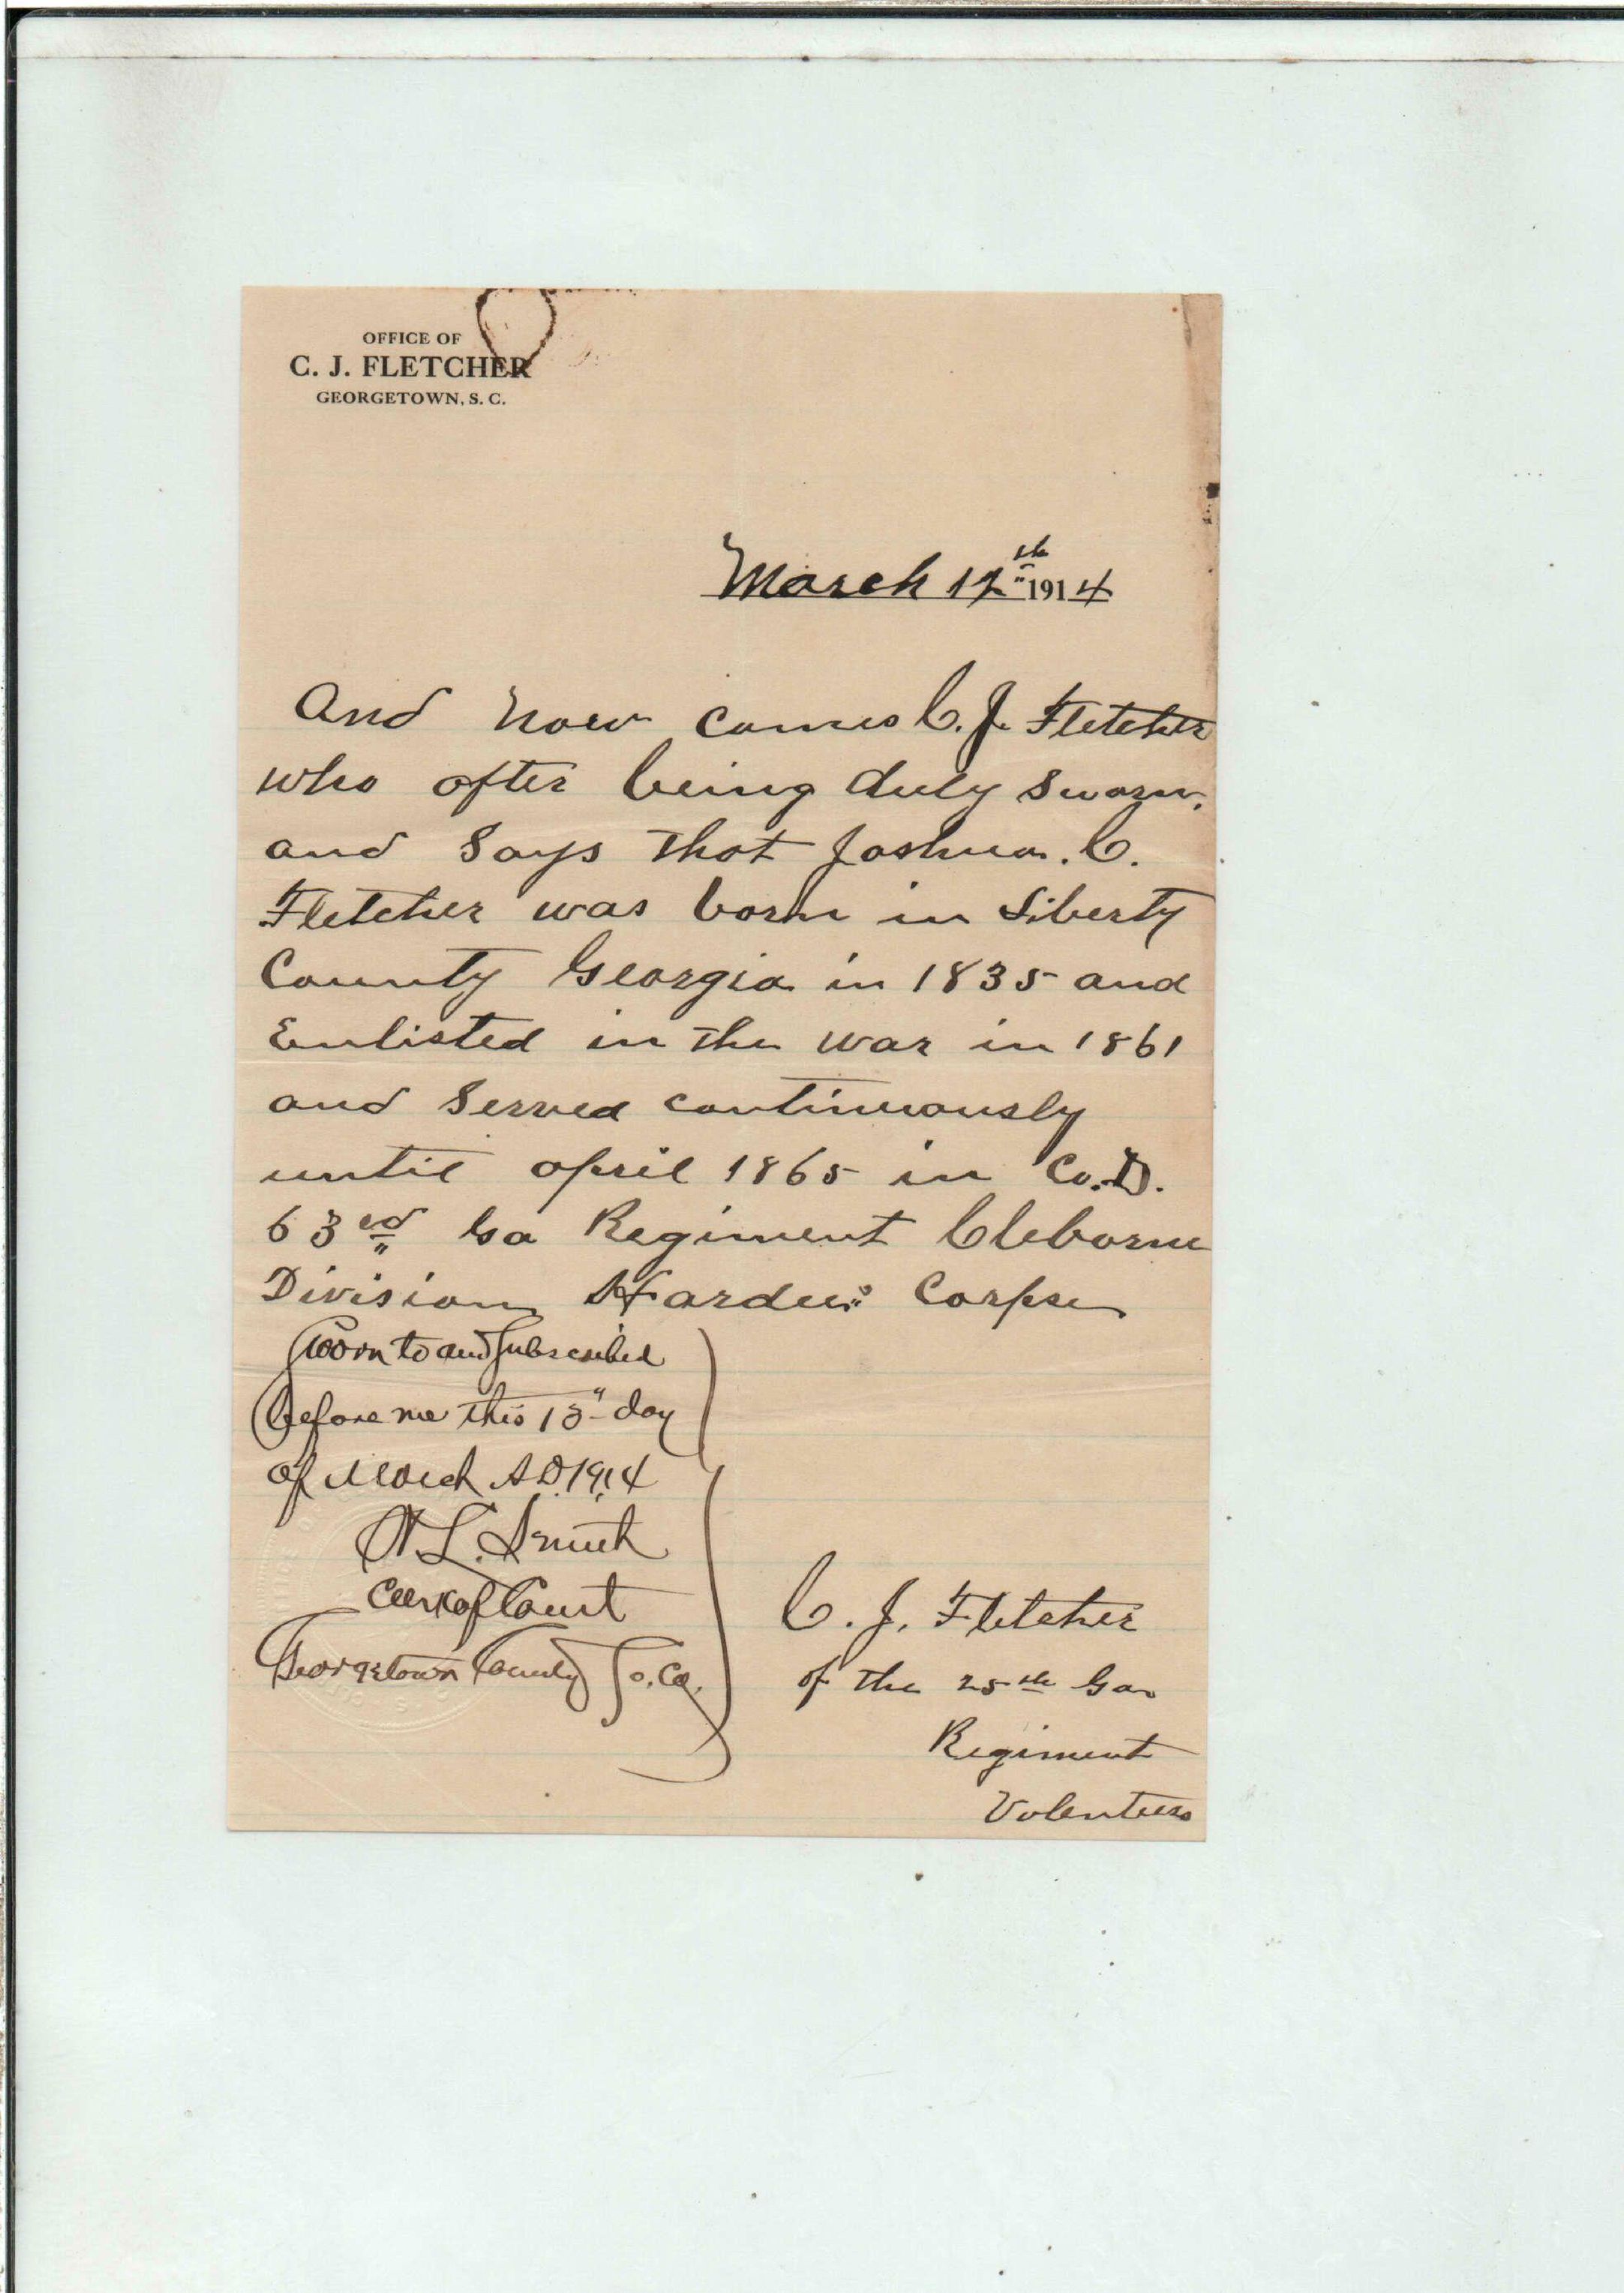 OFFICE OF
C. J. FLETCHER
GEORGETOWN, S. C.
March 12th 1914
And Now comes C. J. Fletcher
who after being duly sworn,
and Says That Joshua. C.
Fletcher was born in Liberty
County Georgia in 1835 and
Enlisted in the war in 1861
and Served continuously
until april 1865 in Co. D.
63rd Ga Regiment Cleborne
Division Hardee's Corpse
Sworn to and Subscribed
before me this 13" day
of March A.D. 1914
Smith
Clerk of Court
Georgetown County So. Ca.
C. J. Fletcher
of the 25th Ga
Regiment
Volenteers